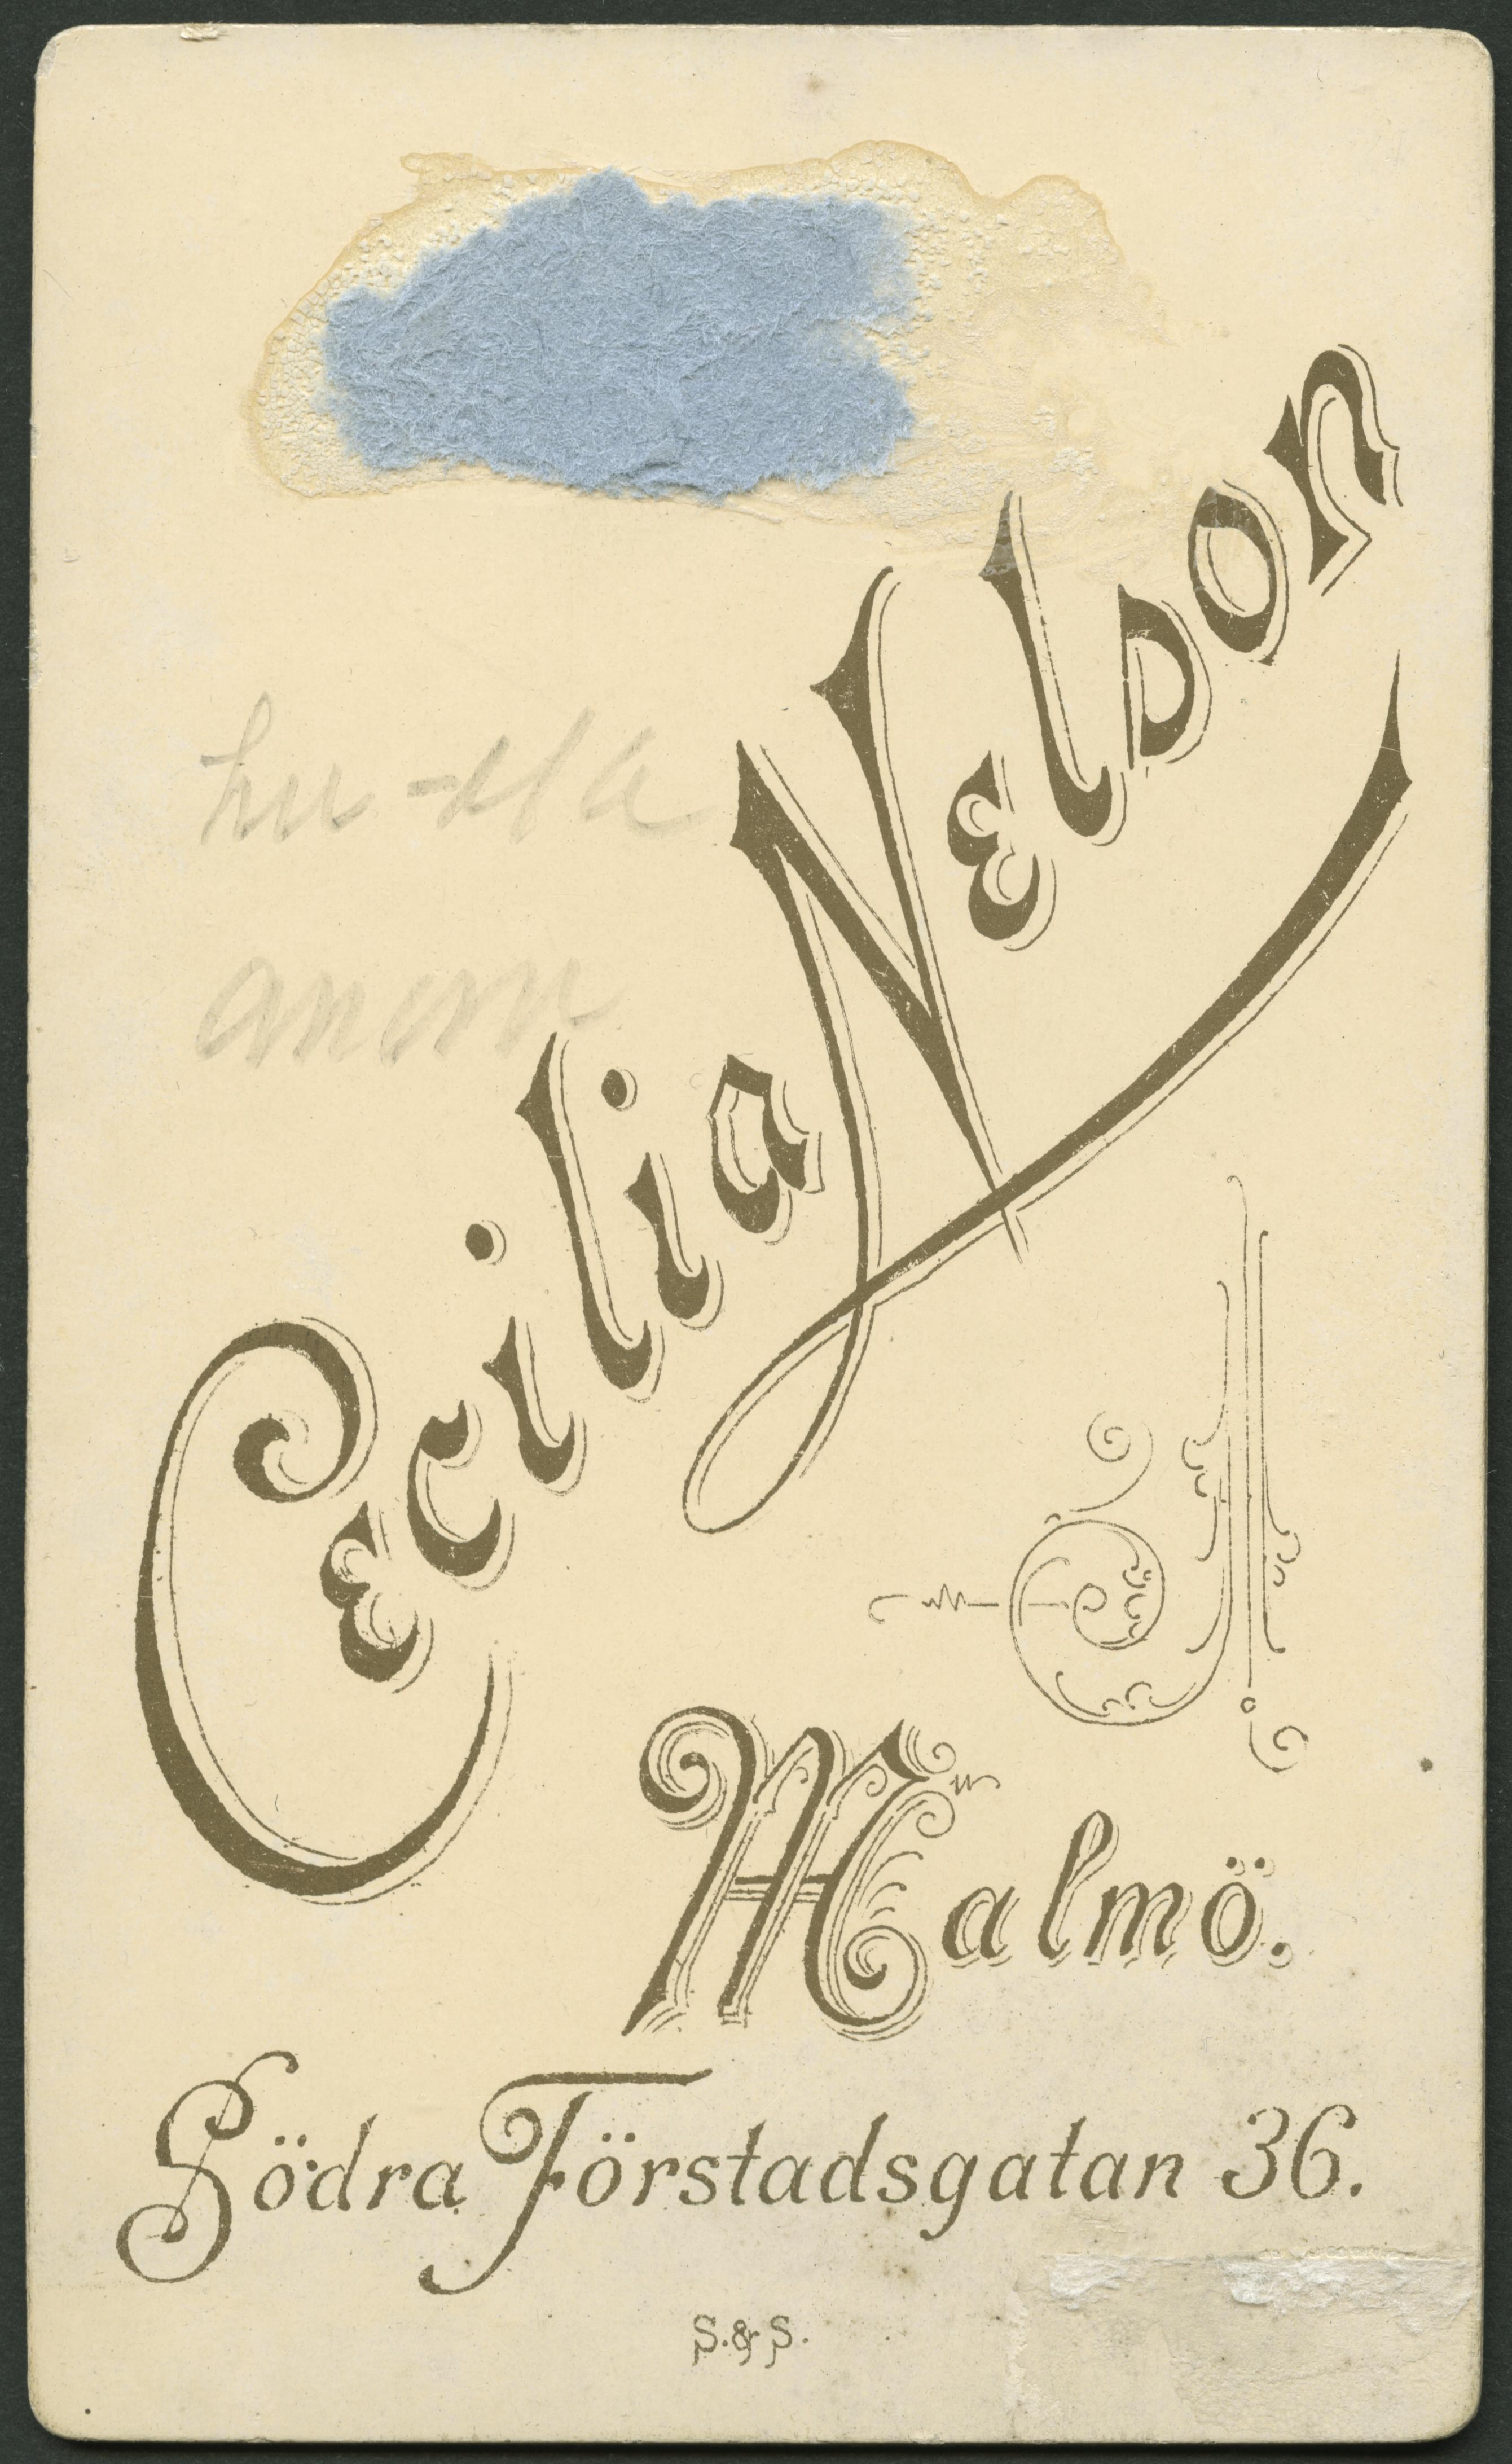 Cecilia Nelson
Malmö.
Södra Förstadsgatan 36.
S. & S.